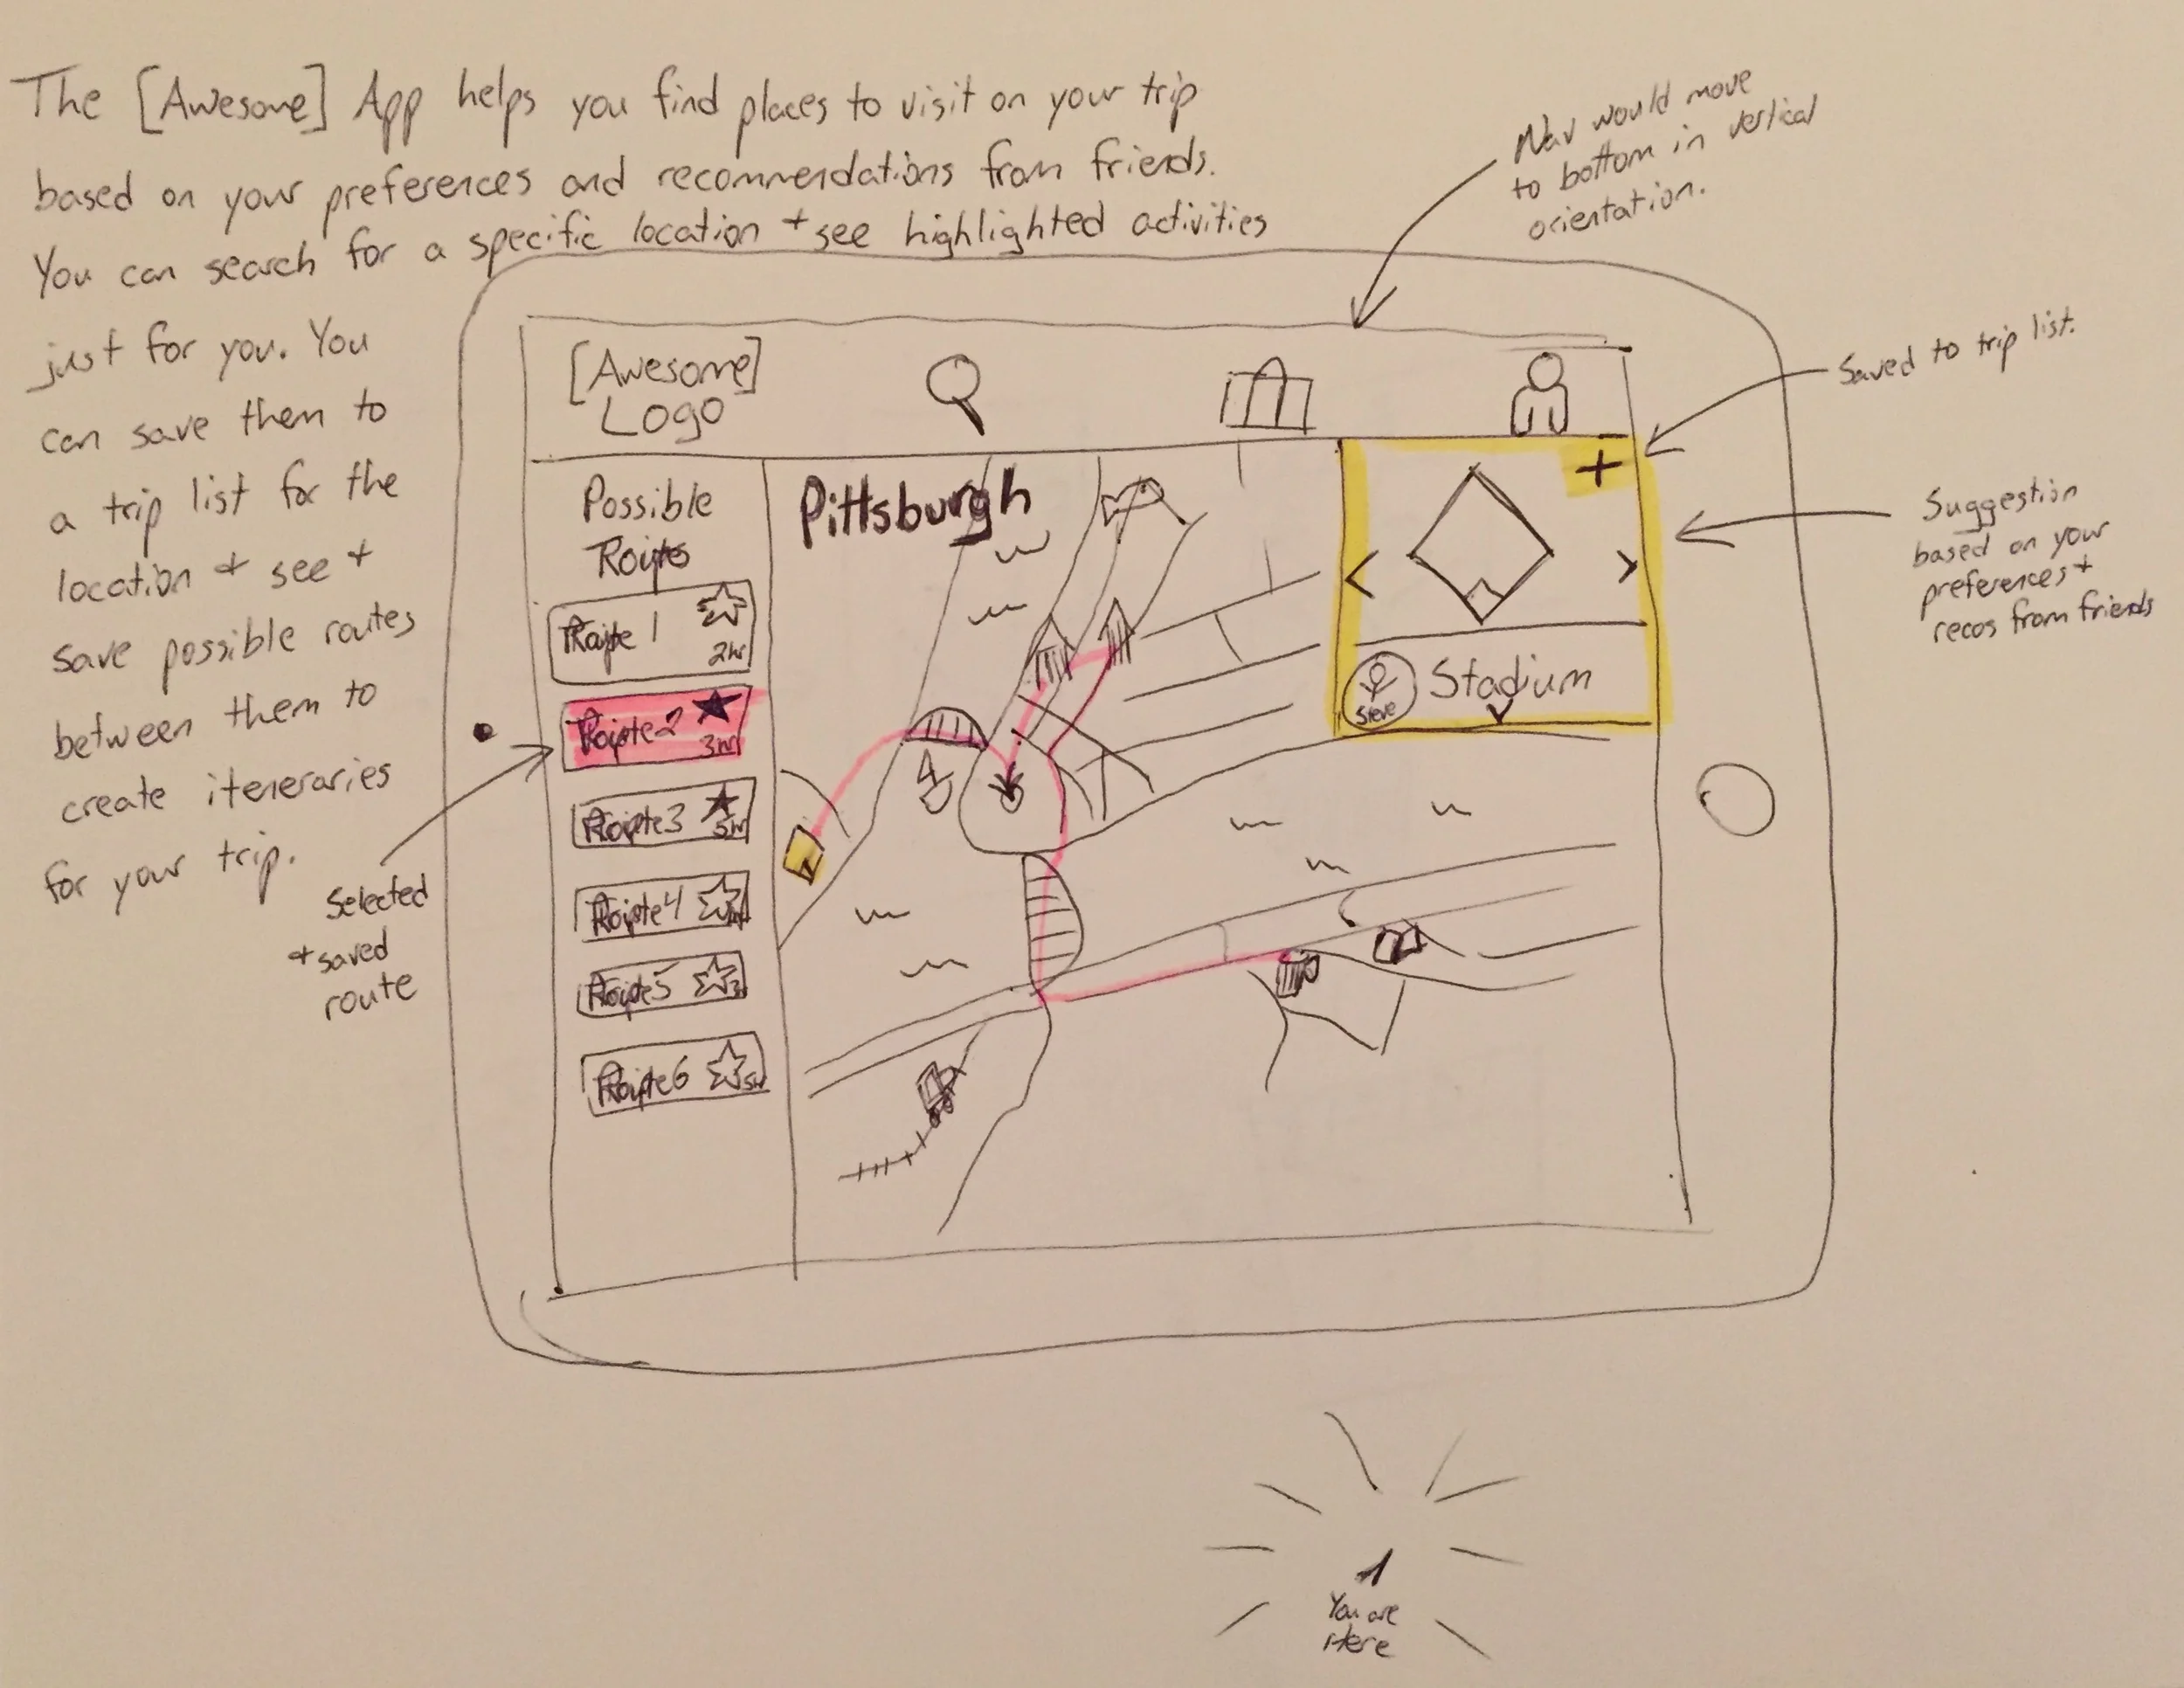 The [Awesome] App helps you find places to visit on your trip
based on your preferences and recommendations from friends.
You can search for a specific location + see highlighted activities
just for you. You
can save them to
a trip list for the
location + see +
save possible routes
between them to
create iteneraries
for your trip.
Nav would move
to bottom in vertical
orientation.
Saved to trip list.
Suggestion
based on your
preferences +
recos from friends
Selected
+ saved
route
[Awesome]
Logo
Possible
Routes
Route 1
2hr
Route 2
3hr
Route 3
5hr
Route 4
Route 5
Route 6
5hr
Pittsburgh
+
<
>
Steve
Stadium
You are
Here